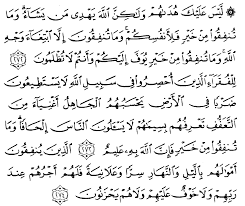 ۞ لَّيْسَ عَلَيْكَ هُدَىٰهُمْ وَلَٰكِنَّ ٱللَّهَ يَهْدِى مَن يَشَآءُ ۗ وَمَا
تُنفِقُوا۟ مِنْ خَيْرٍ فَلِأَنفُسِكُمْ ۚ وَمَا تُنفِقُونَ إِلَّا ٱبْتِغَآءَ وَجْهِ
ٱللَّهِ ۚ وَمَا تُنفِقُوا۟ مِنْ خَيْرٍ يُوَفَّ إِلَيْكُمْ وَأَنتُمْ لَا تُظْلَمُونَ ﴿٢٧٢﴾
لِلْفُقَرَآءِ ٱلَّذِينَ أُحْصِرُوا۟ فِى سَبِيلِ ٱللَّهِ لَا يَسْتَطِيعُونَ
ضَرْبًا فِى ٱلْأَرْضِ يَحْسَبُهُمُ ٱلْجَاهِلُ أَغْنِيَآءَ مِنَ
ٱلتَّعَفُّفِ تَعْرِفُهُم بِسِيمَٰهُمْ لَا يَسْـَٔلُونَ ٱلنَّاسَ إِلْحَافًا ۗ وَمَا
تُنفِقُوا۟ مِنْ خَيْرٍ فَإِنَّ ٱللَّهَ بِهِۦ عَلِيمٌ ﴿٢٧٣﴾ ٱلَّذِينَ يُنفِقُونَ
أَمْوَٰلَهُم بِٱلَّيْلِ وَٱلنَّهَارِ سِرًّا وَعَلَانِيَةً فَلَهُمْ أَجْرُهُمْ عِندَ
رَبِّهِمْ وَلَا خَوْفٌ عَلَيْهِمْ وَلَا هُمْ يَحْزَنُونَ ﴿٢٧٤﴾